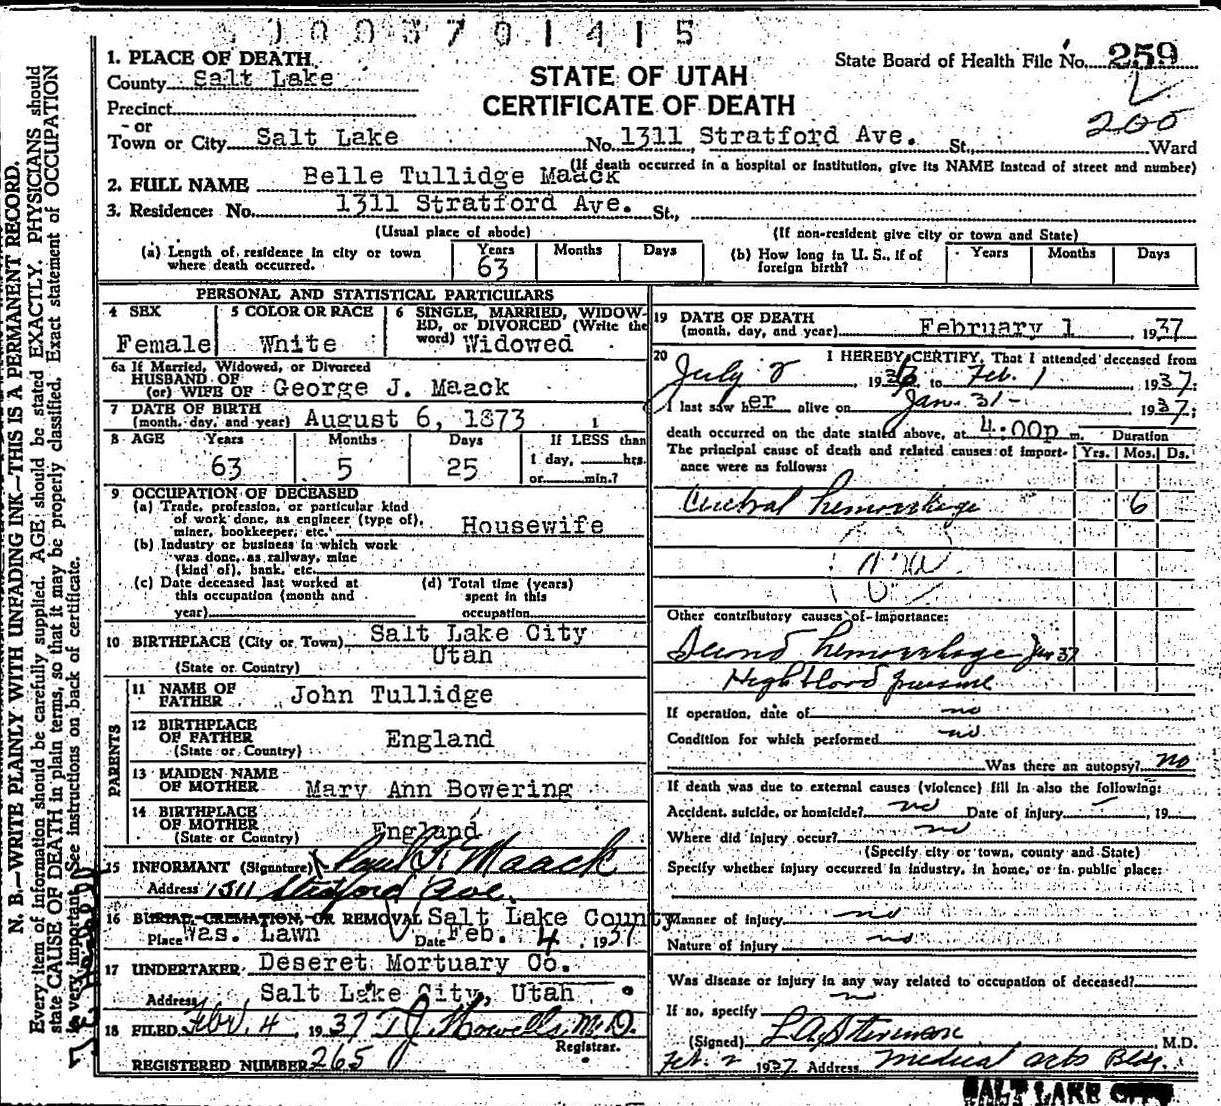 1003701415
1. PLACE OF DEATH
State Board of Health File No. 259
County Salt Lake
STATE OF UTAH
Precinct
CERTIFICATE OF DEATH
200
-or
Town or City Salt Lake No. 1311 Stratford Ave. St., Ward
(If death occurred in a hospital or institution, give its NAME instead of street and number)
2. FULL NAME Belle Tullidge Maack
3. Residence: No. 1311 Stratford Ave. St.,
(Usual place of abode) (If non-resident give city or town and State)
(a) Length of residence in city or town where death occurred. Years 63 Months Days
(b) How long in U. S., if of foreign birth? Years Months Days
PERSONAL AND STATISTICAL PARTICULARS
4 SEX Female
5 COLOR OR RACE White
6 SINGLE, MARRIED, WIDOWED, or DIVORCED (Write the word) Widowed
6a If Married, Widowed, or Divorced
HUSBAND OF
(or) WIFE OF George J. Maack
7 DATE OF BIRTH
(month, day, and year) August 6, 1873
8 AGE Years Months Days If LESS than
63 5 25 1 day, hrs.
or min.?
9 OCCUPATION OF DECEASED
(a) Trade, profession, or particular kind
of work done, as engineer (type of),
miner, bookkeeper, etc. Housewife
(b) Industry or business in which work
was done, as railway, mine
(kind of), bank, etc.
(c) Date deceased last worked at
this occupation (month and
year)
(d) Total time (years)
spent in this
occupation
10 BIRTHPLACE (City or Town) Salt Lake City
(State or Country) Utah
PARENTS
11 NAME OF
FATHER John Tullidge
12 BIRTHPLACE
OF FATHER England
(State or Country)
13 MAIDEN NAME
OF MOTHER Mary Ann Bowering
14 BIRTHPLACE
OF MOTHER
(State or Country) England
15 INFORMANT (Signature) Paul T. Maack
Address 1311 Stratford Ave.
16 BURIAL, CREMATION, OR REMOVAL Salt Lake County
Place Was. Lawn Date Feb. 4, 1937
17 UNDERTAKER Deseret Mortuary Co.
Address Salt Lake City, Utah
18 FILED Feb. 4 1937 T J Howells M.D.
Registrar.
REGISTERED NUMBER 265
19 DATE OF DEATH
(month, day, and year) February 1, 1937
20 I HEREBY CERTIFY, That I attended deceased from
July 2, 1936 to Feb. 1 1937;
I last saw her alive on Jan. 31- 1937;
death occurred on the date stated above, at 4:00p m. Duration
The principal cause of death and related causes of importance were as follows: Yrs. Mos. Ds.
Cerebral hemorrhage 6
Other contributory causes of importance:
Second hemorrhage Jan 37
High blood pressure
If operation, date of no
Condition for which performed no
Was there an autopsy? no
If death was due to external causes (violence) fill in also the following:
Accident, suicide, or homicide? no Date of injury - , 19
Where did injury occur? no
(Specify city or town, county and State)
Specify whether injury occurred in industry, in home, or in public place:
Manner of injury no
Nature of injury no
Was disease or injury in any way related to occupation of deceased?
If so, specify no
(Signed) L A Stevenson M.D.
Feb. 2 1937 Address Medical Arts Bldg.
SALT LAKE CITY
N. B.—WRITE PLAINLY WITH UNFADING INK—THIS IS A PERMANENT RECORD.
Every item of information should be carefully supplied. AGE should be stated EXACTLY. PHYSICIANS should
state CAUSE OF DEATH in plain terms, so that it may be properly classified. Exact statement of OCCUPATION
is very important. See instructions on back of certificate.